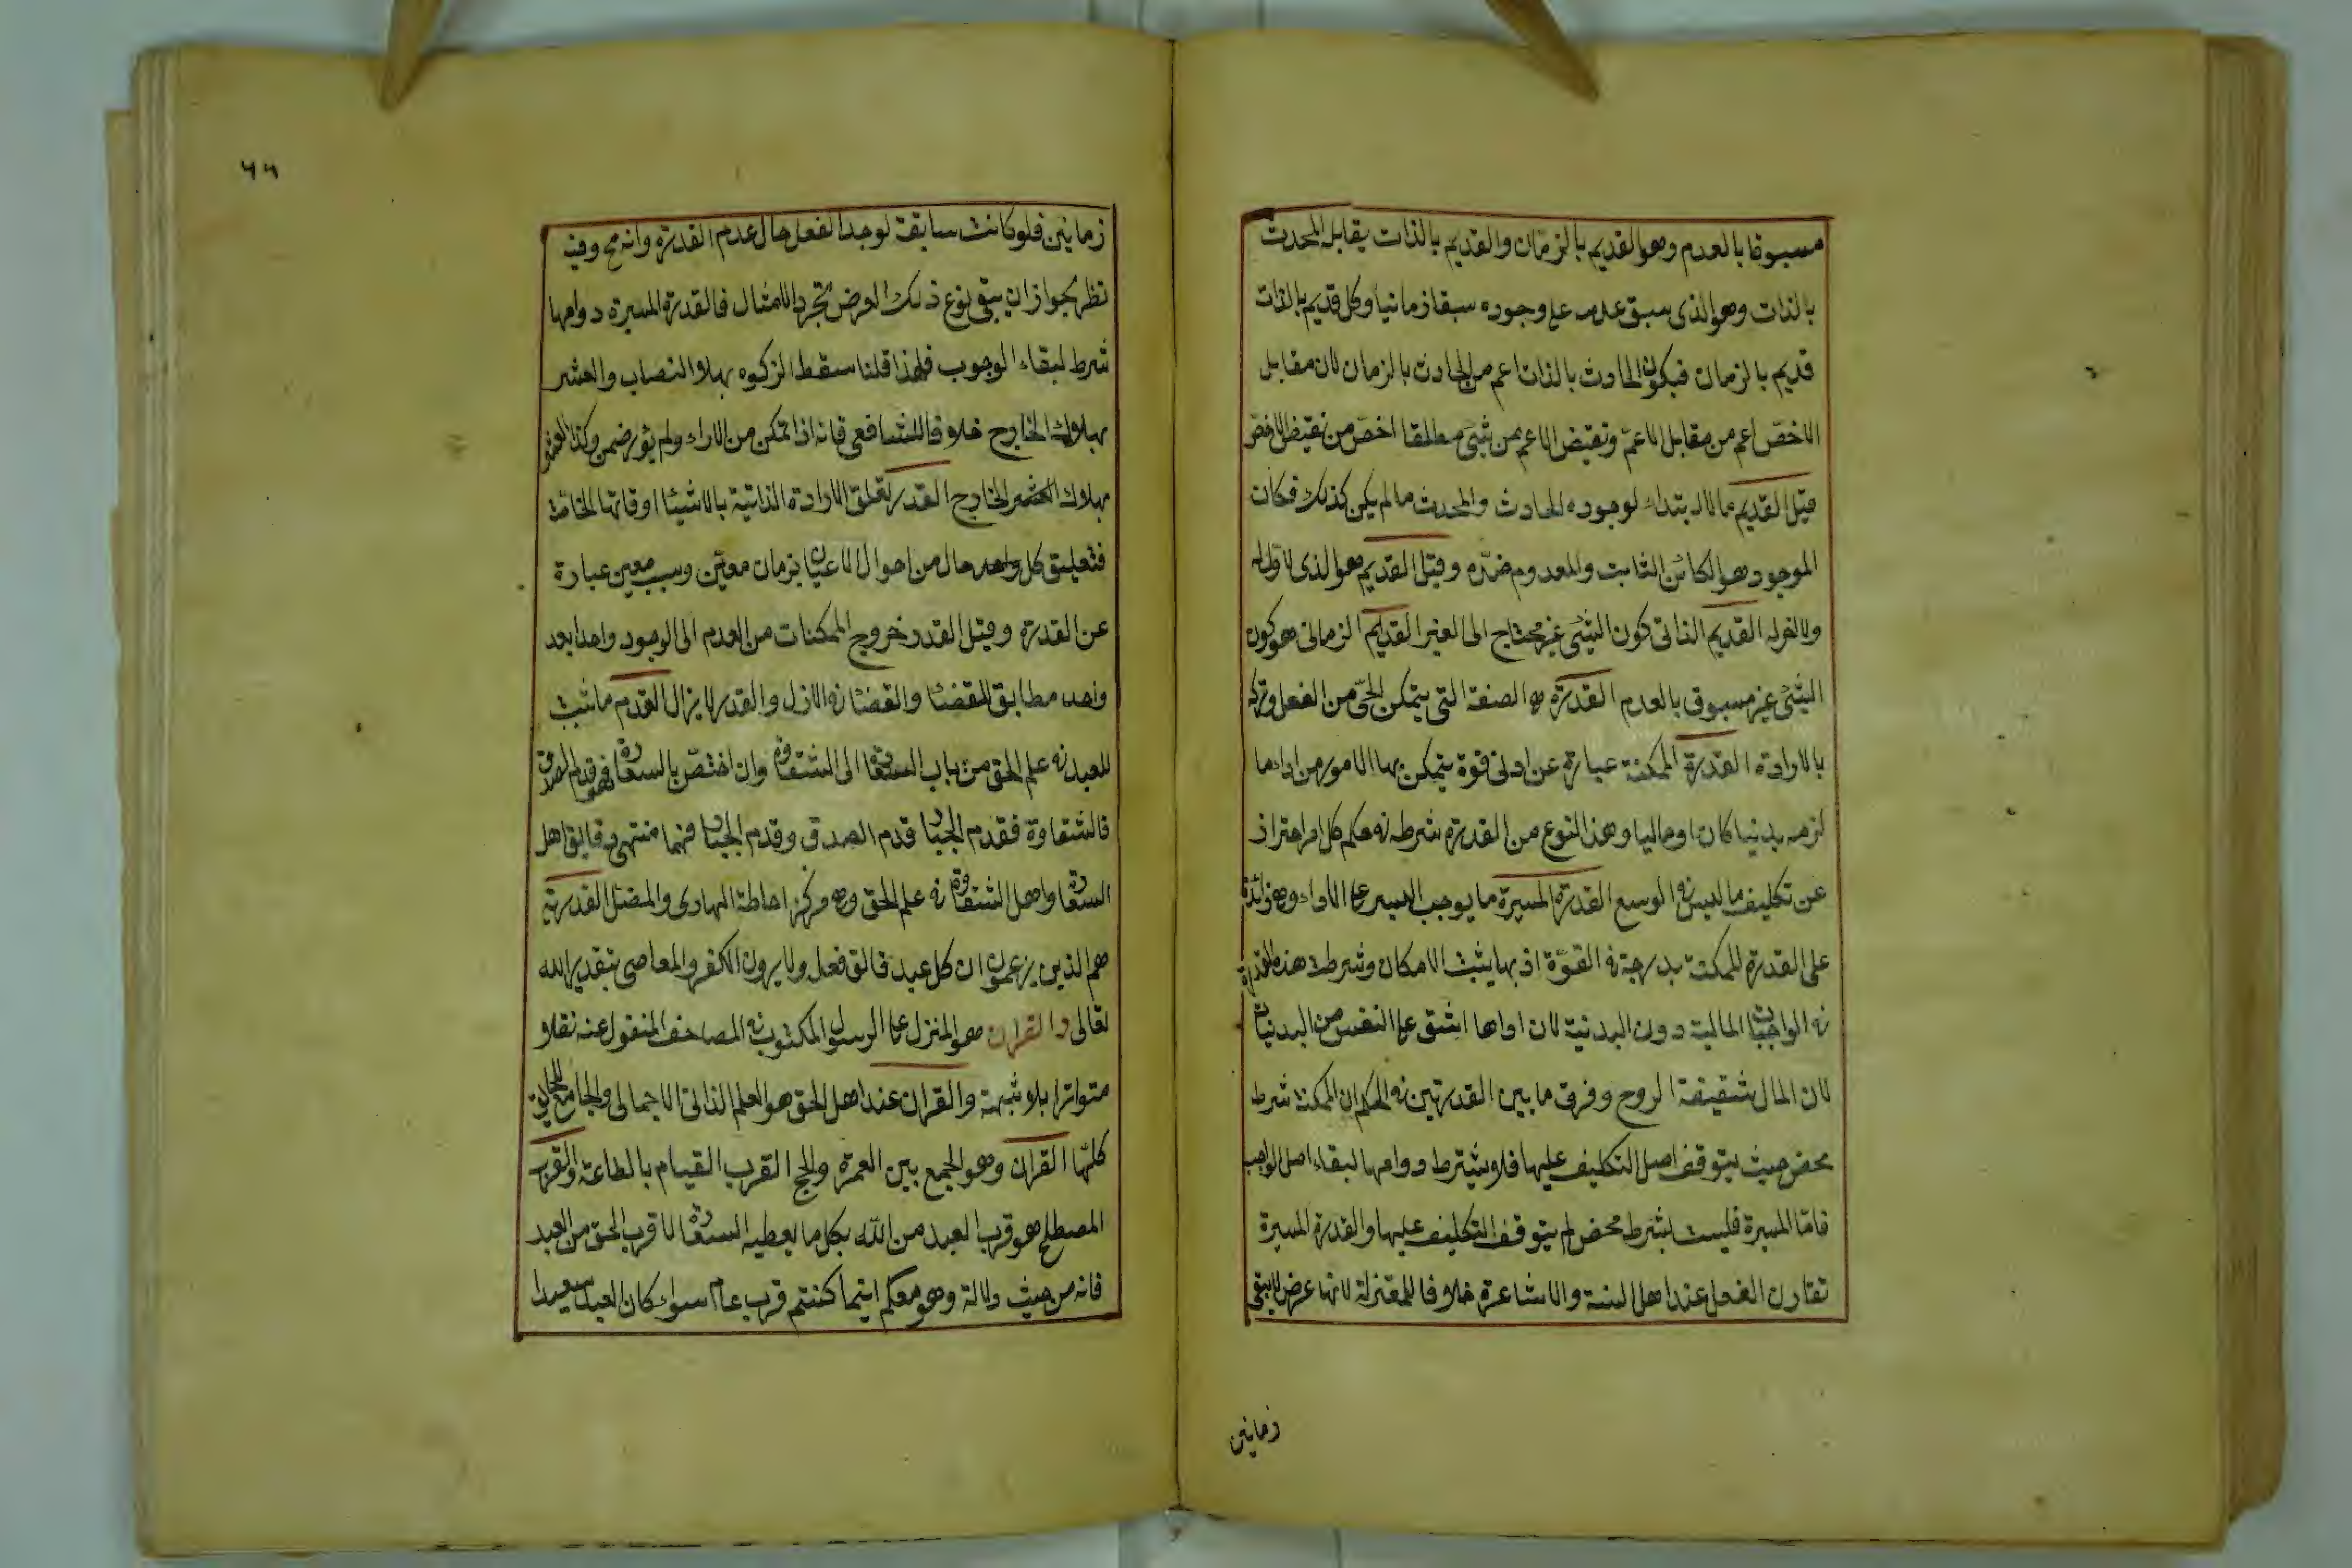 مسبوقا بالعدم وهو القديم بالزمان والقديم بالذات يقابل المحدث
بالذات وهو الذى سبق عدمه على وجوده سبقا زمانيا وكل قديم بالذات
قديم بالزمان فيكون الحادث بالذات اعم من الحادث بالزمان لان مقابل
الاخصّ اعم من مقابل الاعمّ ونقيض الاعم من شئ مطلقا اخصّ من نقيض الاخصّ
قيل القديم مالا ابتداء لوجوده الحادث والمحدث مالم يكن كذلك فكان
الموجود هو الكائن الثابت والمعدوم ضدّه وقيل القديم هو الذى لا اوّل له
ولا اخر له القديم الذاتى كون الشئ غير محتاج الى الغير القديم الزمانى هو كون
الشئ غير مسبوق بالعدم القدرة هى الصفة التى يتمكن الحىّ من الفعل وتركه
بالارادة القدرة الممكنة عبارة عن ادنى قوة يتمكن بها المامور من اداء ما
لزمه بدنيا كان او ماليا وهذا النوع من القدرة شرط فى حكم كل امر احتراز
عن تكليف ما ليس فى الوسع القدرة الميسرة ما يوجب اليسر على الاداء وهى زائدة
على القدرة الممكنة بدرجة فى القوّة اذ بها يثبت الامكان وشرطت هذه القدرة
فى الواجبات المالية دون البدنية لان اداءها اشق على النفس من البدنيات
لان المال شقيقة الروح وفرق ما بين القدرتين فى الحكم ان الممكنة شرط
محض حيث يتوقف اصل التكليف عليها فلا يشترط دوامها لبقاء اصل الواجب
فامّا الميسرة فليست بشرط محض لم يتوقف التكليف عليها والقدرة الميسرة
تقارن الفعل عند اهل السنة والاشاعرة خلافا للمعتزلة لانها عرض لا يبقى
زمانين
٦٦
زمانين فلو كانت سابقة لوجد الفعل حال عدم القدرة وانه مح وفيه
نظر لجواز ان يبقى نوع ذلك العرض بتجرد الامثال فالقدرة الميسرة دوامها
شرط لبقاء الوجوب فلهذا قلنا سقط الزكوة بهلاك النصاب والعشر
بهلاك الخارج خلافا للشافعى فانه اذا تمكن من الاداء ولم يؤد ضمن وكذا العشر
بهلاك العشر الخارج القدر تعلق الارادة الذاتية بالاشياء اوقاتها الخاصة
فتعليق كل واحد حال من احوال الاعيان بزمان معيّن وسبب معين عبارة
عن القدرة وقيل القدر خروج الممكنات من العدم الى الوجود واحدا بعد
واحد مطابق للقضاء والقضاء فى الازل والقدر لا يزال القدم ما ثبت
للعبد فى علم الحق من باب السعادة الى الشقاوة وان اختصّ بالسعادة فهو قدم الصدق
فالشقاوة فقدم الجبار قدم الصدق وقدم الجبار فهما منتهى دقايق اهل
السعادة واهل الشقاوة فى علم الحق وهى مركز احاطة الهادى والمضل القدرية
هم الذين يزعمون ان كل عبد خالق فعله ولا يرون الكفر والمعاصى بتقدير الله
تعالى والقران هو المنزل على الرسول المكتوب فى المصاحف المنقول عنه نقلا
متواترا بلا شبهة والقران عند اهل الحق هو العلم الذاتى الاجمالى والجامع للحقايق
كلّها القران وهو الجمع بين العمرة والحج القرب القيام بالطاعة والقرب
المصطلح هو قرب العبد من الله بكل ما يعطيه السعادة لا قرب الحق من العبد
فانه من حيث دلالة وهو معكم اينما كنتم قرب عام سواء كان العبد سعيدا